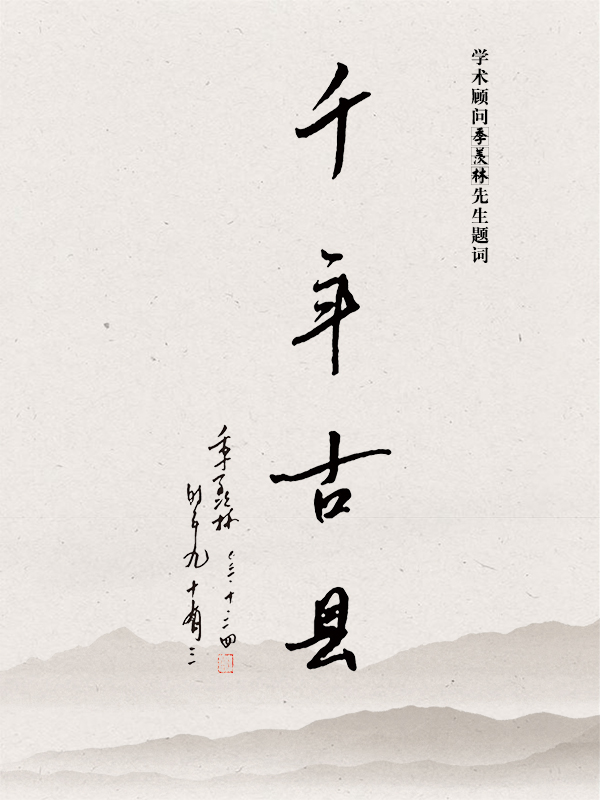 学术顾问季羡林先生题词
千年古县
季羡林 〇三·十·二四
时年九十有三